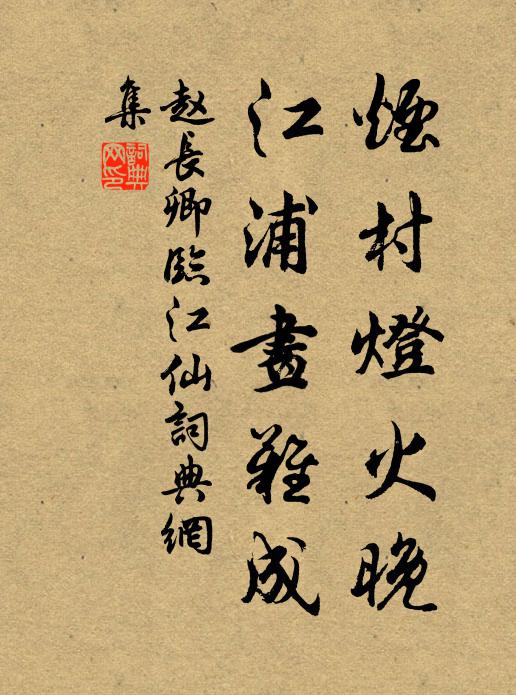 煙村燈火晚
江浦畫難成
赵長卿臨江仙詞典網
集
詞典网印